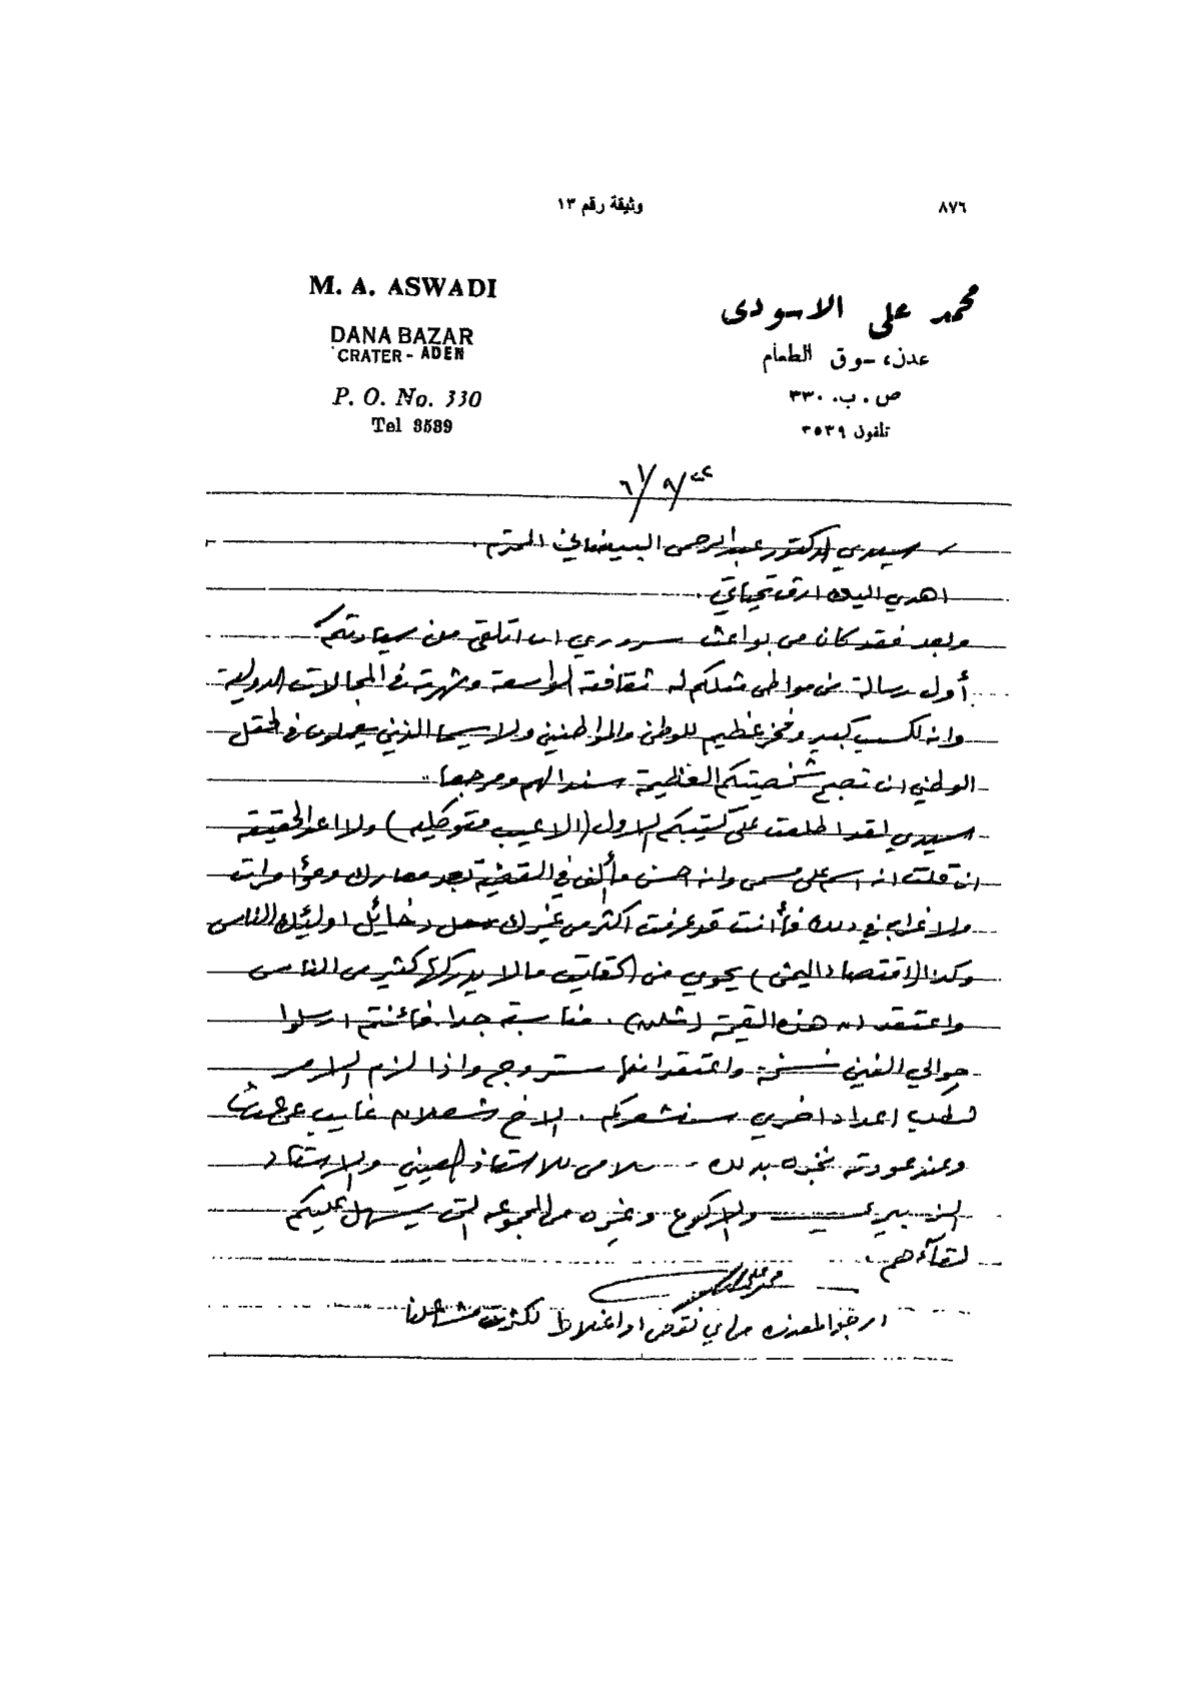 ٨٧٦
وثيقة رقم ١٣
M. A. ASWADI
DANA BAZAR
CRATER - ADEN
P. O. No. 330
Tel 3539
محمد على الاسودى
عدن، سوق الطعام
ص . ب. ٣٣٠
تلفون ٣٥٣٩
سيدي الدكتور عبدالرحمن البيضاني المحترم .
اهدي اليك ارق تحياتي .
وبعد فقد كان من بواعث سروري ان اتلقى من سيادتكم
أول رسالة من مواطن مثلكم له ثقافته الواسعة وشهرته في المجالات الدولية
وانه لكسب كبير وفخر عظيم للوطن والمواطنين ولا سيما الذين يعملون في الحقل
الوطني ان تصبح شخصيتكم العظيمة سندا لهم ومرجعا ..
سيدي لقد اطلعت على كتيبكم الاول (الاعيب متوكليه) ولا اعدو الحقيقة
ان قلت انه اسم على مسمى وانه احسن ما ألف في القضية بعد معارك ومؤامرات
ولا غرابه في ذلك فأنت قد عرفت اكثر من غيرك دخائل اولئك الناس
وكذا (اقتصاد اليمن) يحوي من الحقايق مالا يدركها كثير من الناس
واعتقد ان هذه القيمة (شلن) . مناسبة جدا فائنتم ارسلوا
حوالي الفين نسخة واعتقد انها ستروج واذا لزم الامر
لطلب اعداد اخرى سنشعركم . الاخ شعلان غايب عن
وعند عودته نخبره بذلك .. سلامي للاستاذ العيني والاستاذ
الزبيري والاكوع وغيره من المجموعه التي يسهل عليكم
لقآءهم .
ارجو المعذره من اي نقص او اغلاط لكثرت مشاغلنا